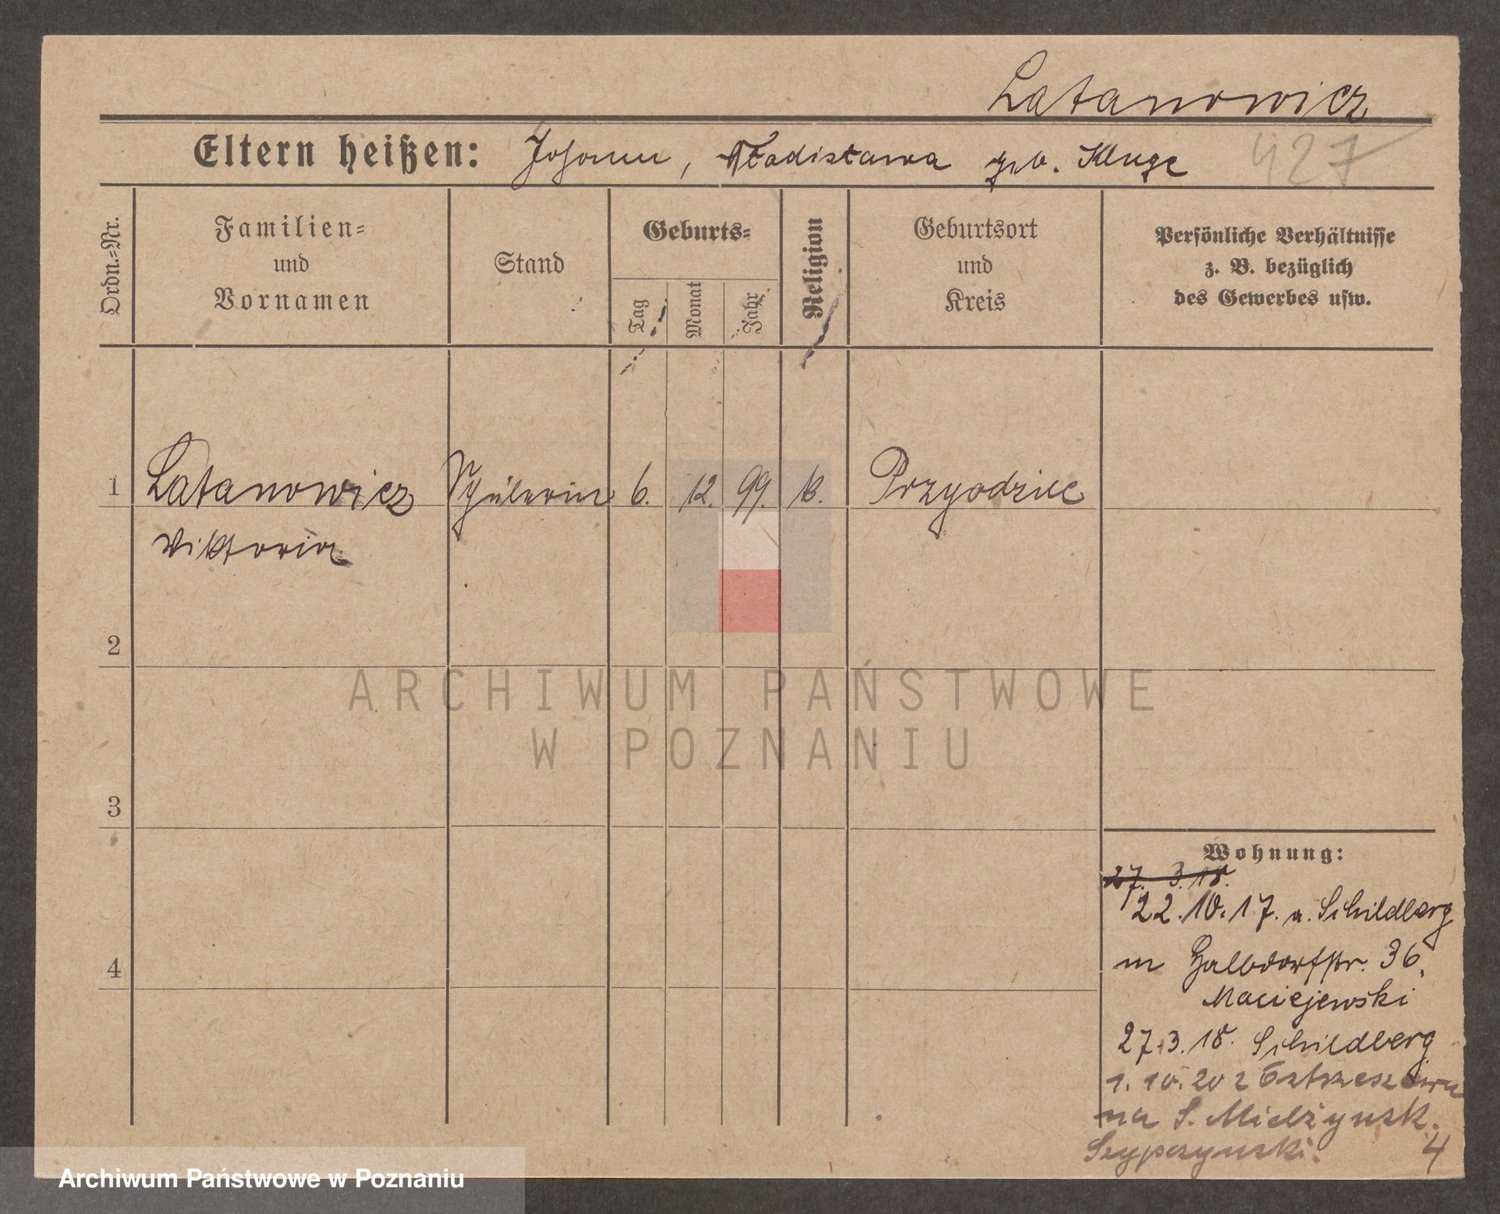 Latanowicz
Eltern heißen: Johann, Wladislawa geb. Kluge 427
Ordn.=Nr.
Familien=
und
Vornamen
Stand
Geburts=
Tag
Monat
Jahr
Religion
Geburtsort
und
Kreis
Persönliche Verhältnisse
z. B. bezüglich
des Gewerbes usw.
1 Latanowicz Schülerin 6. 12. 99. k. Przygodzice
Viktoria
2
3
4
Wohnung:
27. 3. 18.
22.10.17. a. Schildberg
36.
Maciejewski
27.3.18. Schildberg
1.10.20 z Ostrzeszowa
na S. Mielżynsk.
4
ARCHIWUM PAŃSTWOWE
W POZNANIU
Archiwum Państwowe w Poznaniu